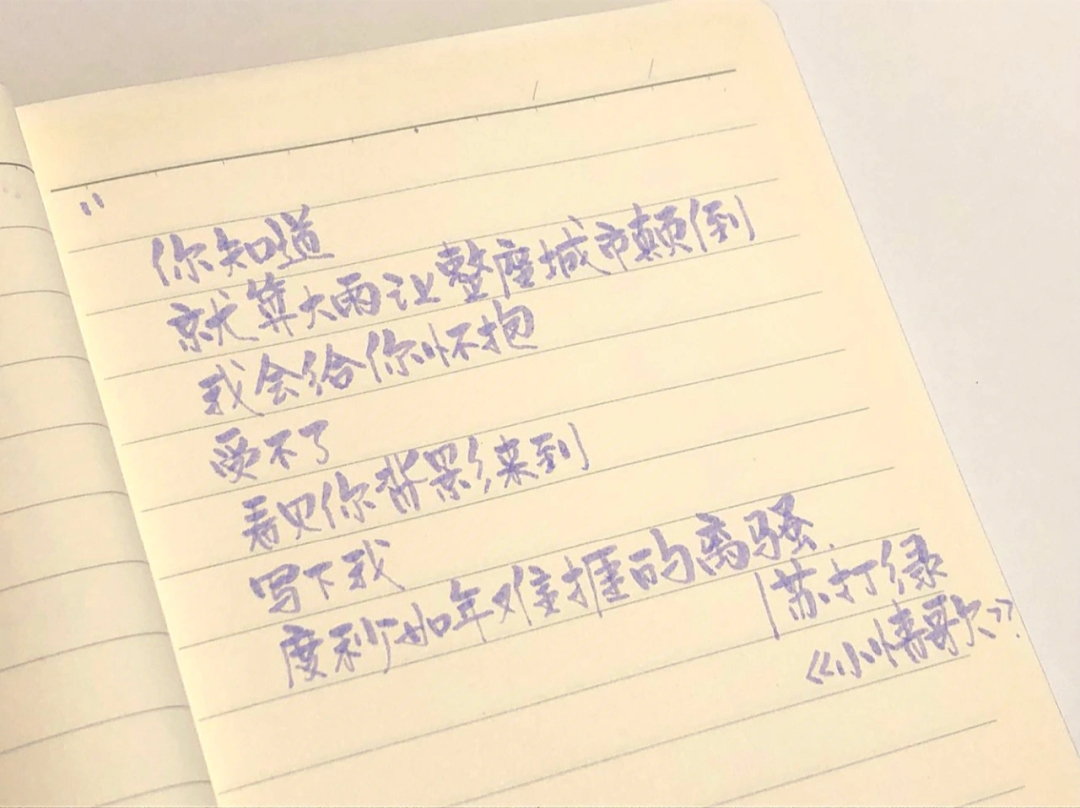 "
你知道
就算大雨让整座城市颠倒
我会给你怀抱
受不了
看见你背影来到
写下我
度秒如年难捱的离骚.
|苏打绿
《小情歌》.